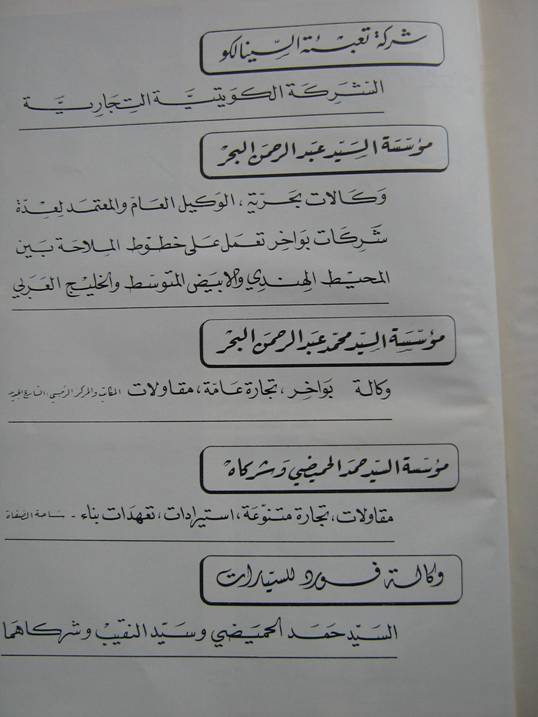 شركة تعبئة السينالكو
الشركة الكويتية التجارية
مؤسسة السيد عبد الرحمن البحر
وكالات بحرية، الوكيل العام والمعتمد لعدة
شركات بواخر تعمل على خطوط الملاحة بين
المحيط الهندي والابيض المتوسط والخليج العربي
مؤسسة السيد محمد عبد الرحمن البحر
وكالة بواخر، تجارة عامة، مقاولات المكاتب والمركز الرئيسي، الشارع الجديد
مؤسسة السيد حمد الحميضي وشركاه
مقاولات، تجارة متنوعة، استيرادات، تعهدات بناء - ساحة الصفاة
وكالة فورد للسيارات
السيد حمد الحميضي وسيد النقيب وشركاهما